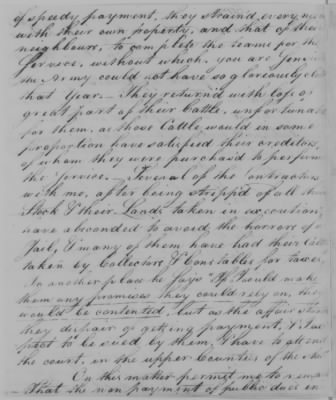 of speedy payment, they strain'd every ne
with their own property, and that of their
neighbours, to complete the teams for the
Service, without which, you are
the Army could not have so gloriously
that Year — They return'd with loss of
great part of their Cattle, unfortunate
for them, as those Cattle would in some
proportion have satisfied their creditors,
of whom they were purchas'd to perform
the Service — Several of the Contractors
with me, after being stripp'd of all their
Stock & their Lands taken in execution,
have absconded to avoid the horrors of a
Jail, & many of them have had their Cattle
taken by Collectors & Constables for Taxes
In another place he says "If I would make
them any promises they could rely on, they
would be contented, but as the affair stands
they despair of getting payment, & I ex
pect to be sued by them, & have to attend
the court, in the upper Counties of the
On this matter permit me to remark
That the non payment of public dues in